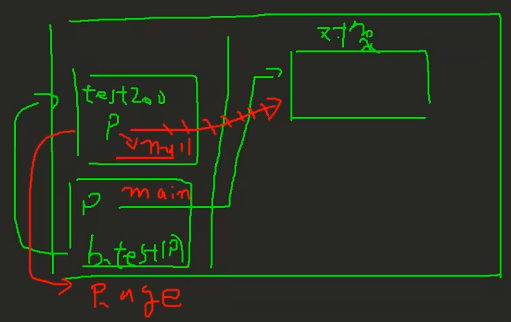 test200
P
null
main
P
b.test(P)
P.age